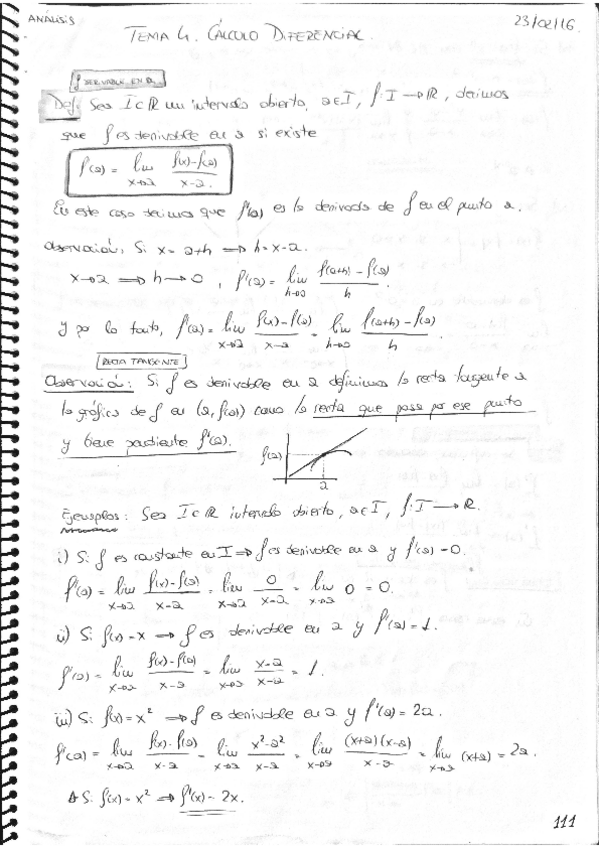 ANÁLISIS
23/02/16
TEMA 4. CÁLCULO DIFERENCIAL.
f DERIVABLE EN a.
Def: Sea I⊂R un intervalo abierto, a∈I, f: I → R, decimos
que f es derivable en a si existe
f'(a) = lim x→a (f(x)-f(a))/(x-a).
En este caso decimos que f'(a) es la derivada de f en el punto a.
Observación, Si x = a+h ⟹ h = x-a.
x→a ⟹ h→0, f'(a) = lim h→0 (f(a+h) - f(a))/h.
y por lo tanto, f'(a) = lim x→a (f(x)-f(a))/(x-a) = lim h→0 (f(a+h) - f(a))/h.
RECTA TANGENTE
Observación: Si f es derivable en a definimos la recta tangente a
la gráfica de f en (a, f(a)) como la recta que pasa por ese punto
y tiene pendiente f'(a).
f(a)
a
Ejemplos: Sea I⊂R intervalo abierto, a∈I, f: I → R.
i) Si f es constante en I ⟹ f es derivable en a y f'(a) = 0.
f'(a) = lim x→a (f(x)-f(a))/(x-a) = lim x→a 0/(x-a) = lim x→a 0 = 0.
ii) Si f(x) = x ⟹ f es derivable en a y f'(a) = 1.
f'(a) = lim x→a (f(x)-f(a))/(x-a) = lim x→a (x-a)/(x-a) = 1.
iii) Si f(x) = x² ⟹ f es derivable en a y f'(a) = 2a.
f'(a) = lim x→a (f(x)-f(a))/(x-a) = lim x→a (x²-a²)/(x-a) = lim x→a ((x+a)(x-a))/(x-a) = lim x→a (x+a) = 2a.
Si f(x) = x² ⟹ f'(x) = 2x.
111